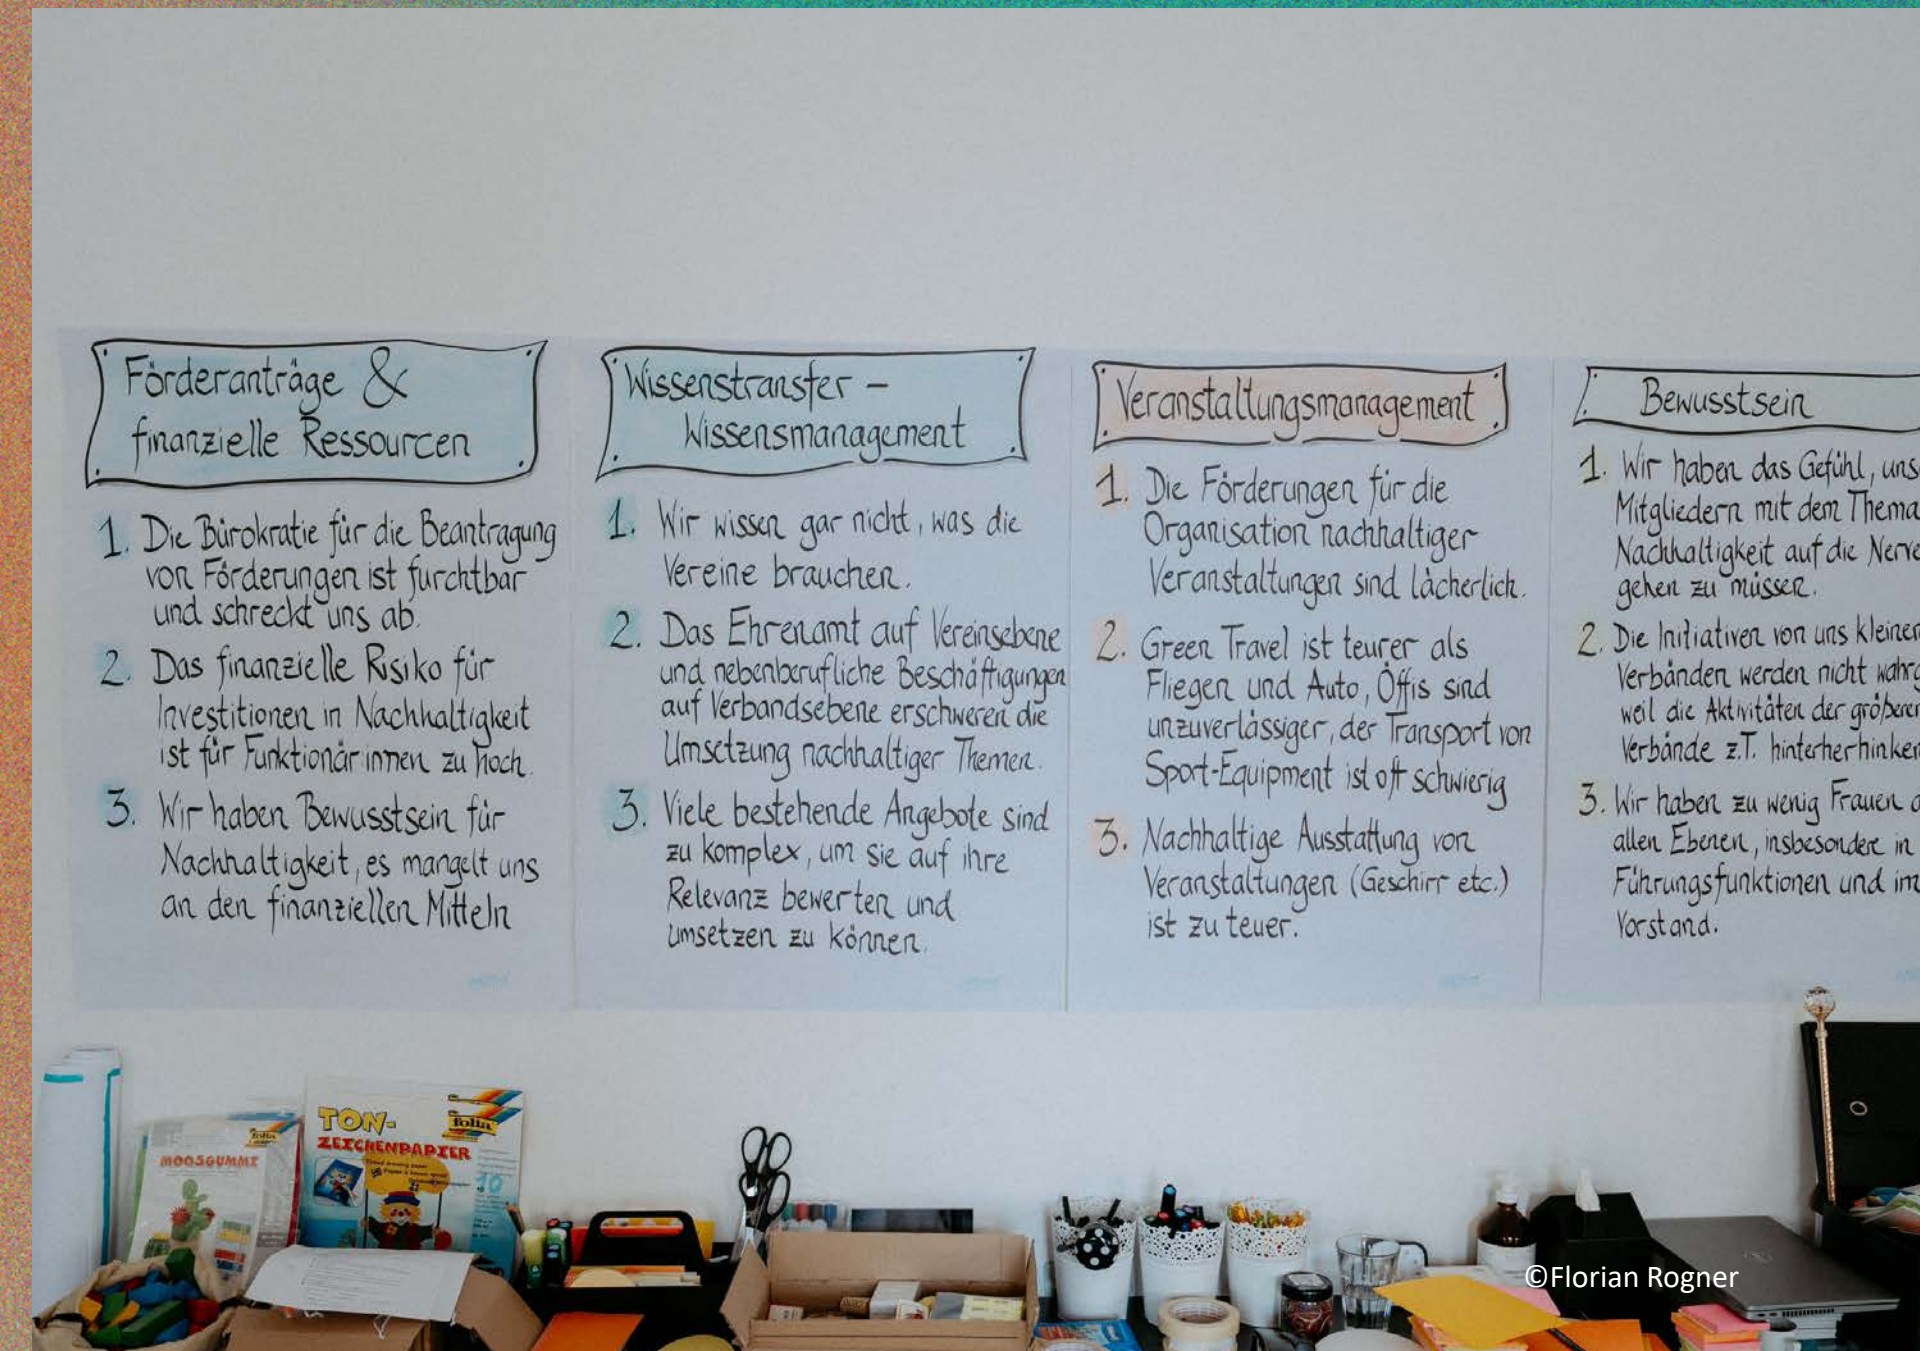 Förderanträge &
finanzielle Ressourcen
1. Die Bürokratie für die Beantragung
von Förderungen ist furchtbar
und schreckt uns ab.
2. Das finanzielle Risiko für
Investitionen in Nachhaltigkeit
ist für Funktionär:innen zu hoch.
3. Wir haben Bewusstsein für
Nachhaltigkeit, es mangelt uns
an den finanziellen Mitteln
Wissenstransfer –
Wissensmanagement
1. Wir wissen gar nicht, was die
Vereine brauchen.
2. Das Ehrenamt auf Vereinsebene
und nebenberufliche Beschäftigungen
auf Verbandsebene erschweren die
Umsetzung nachhaltiger Themen.
3. Viele bestehende Angebote sind
zu komplex, um sie auf ihre
Relevanz bewerten und
umsetzen zu können.
Veranstaltungsmanagement
1. Die Förderungen für die
Organisation nachhaltiger
Veranstaltungen sind lächerlich.
2. Green Travel ist teurer als
Fliegen und Auto, Öffis sind
unzuverlässiger, der Transport von
Sport-Equipment ist oft schwierig
3. Nachhaltige Ausstattung von
Veranstaltungen (Geschirr etc.)
ist zu teuer.
Bewusstsein
1. Wir haben das Gefühl, uns
Mitgliedern mit dem Thema
Nachhaltigkeit auf die Nerve
gehen zu müssen.
2. Die Initiativen von uns kleinen
Verbänden werden nicht wahrg
weil die Aktivitäten der größeren
Verbände z.T. hinterherhinken
3. Wir haben zu wenig Frauen a
allen Ebenen, insbesondere in
Führungsfunktionen und im
Vorstand.
folia
MOOSGUMMI
TON-
folia
ZEICHENPAPIER
10
©Florian Rogner